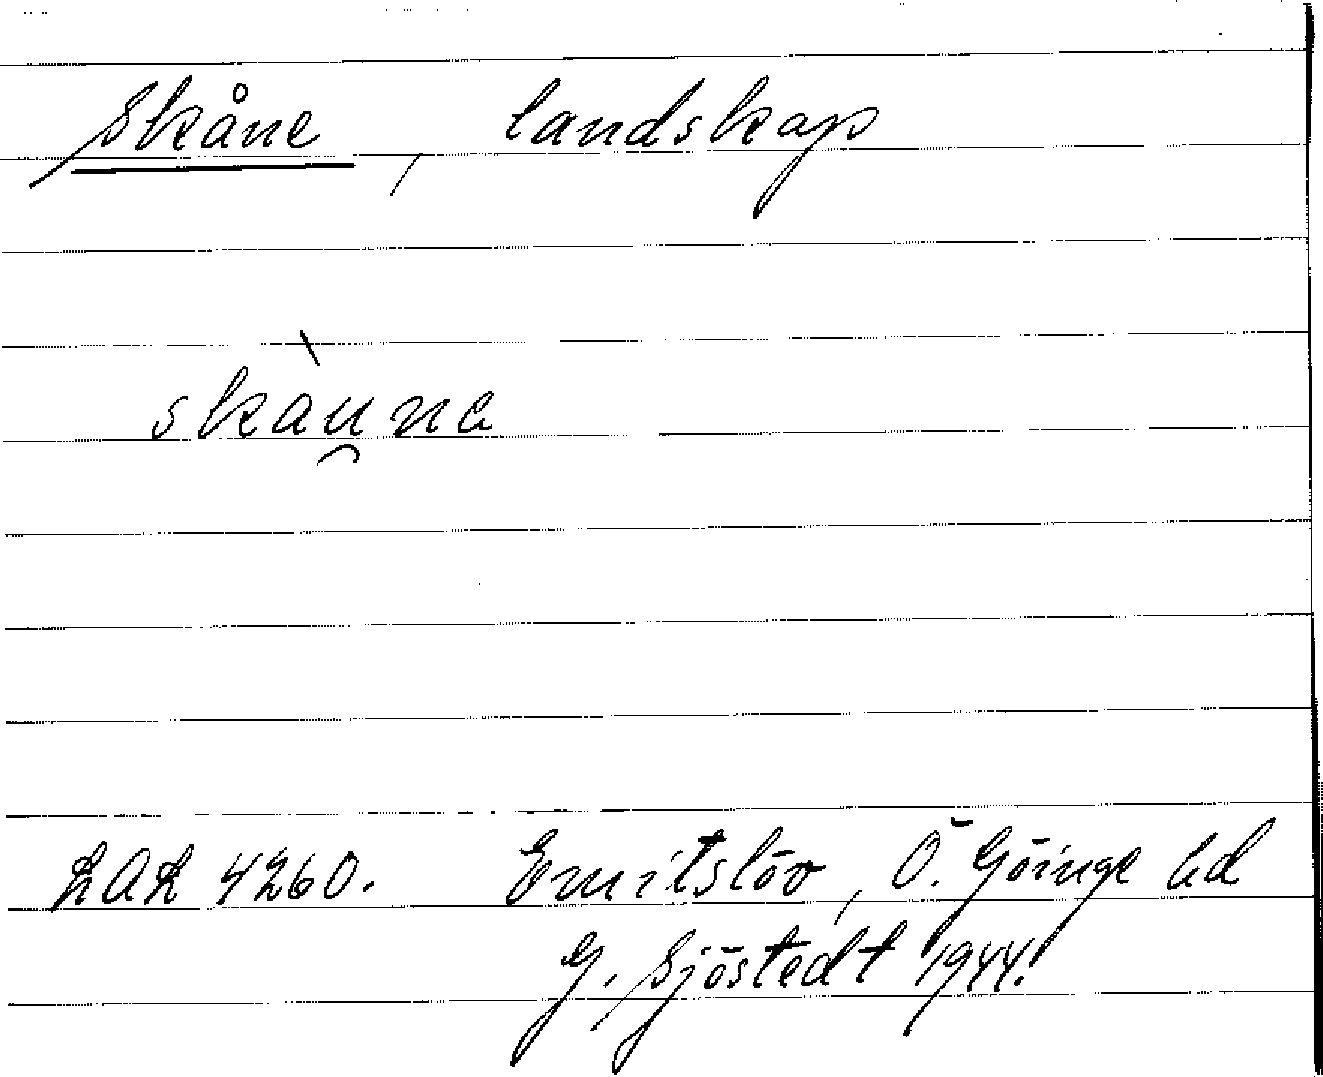 Skåne, landskap
skàu̯na
LAL 4260. Emitslöv, Ö. Göinge hd
G. Sjöstedt 1944.